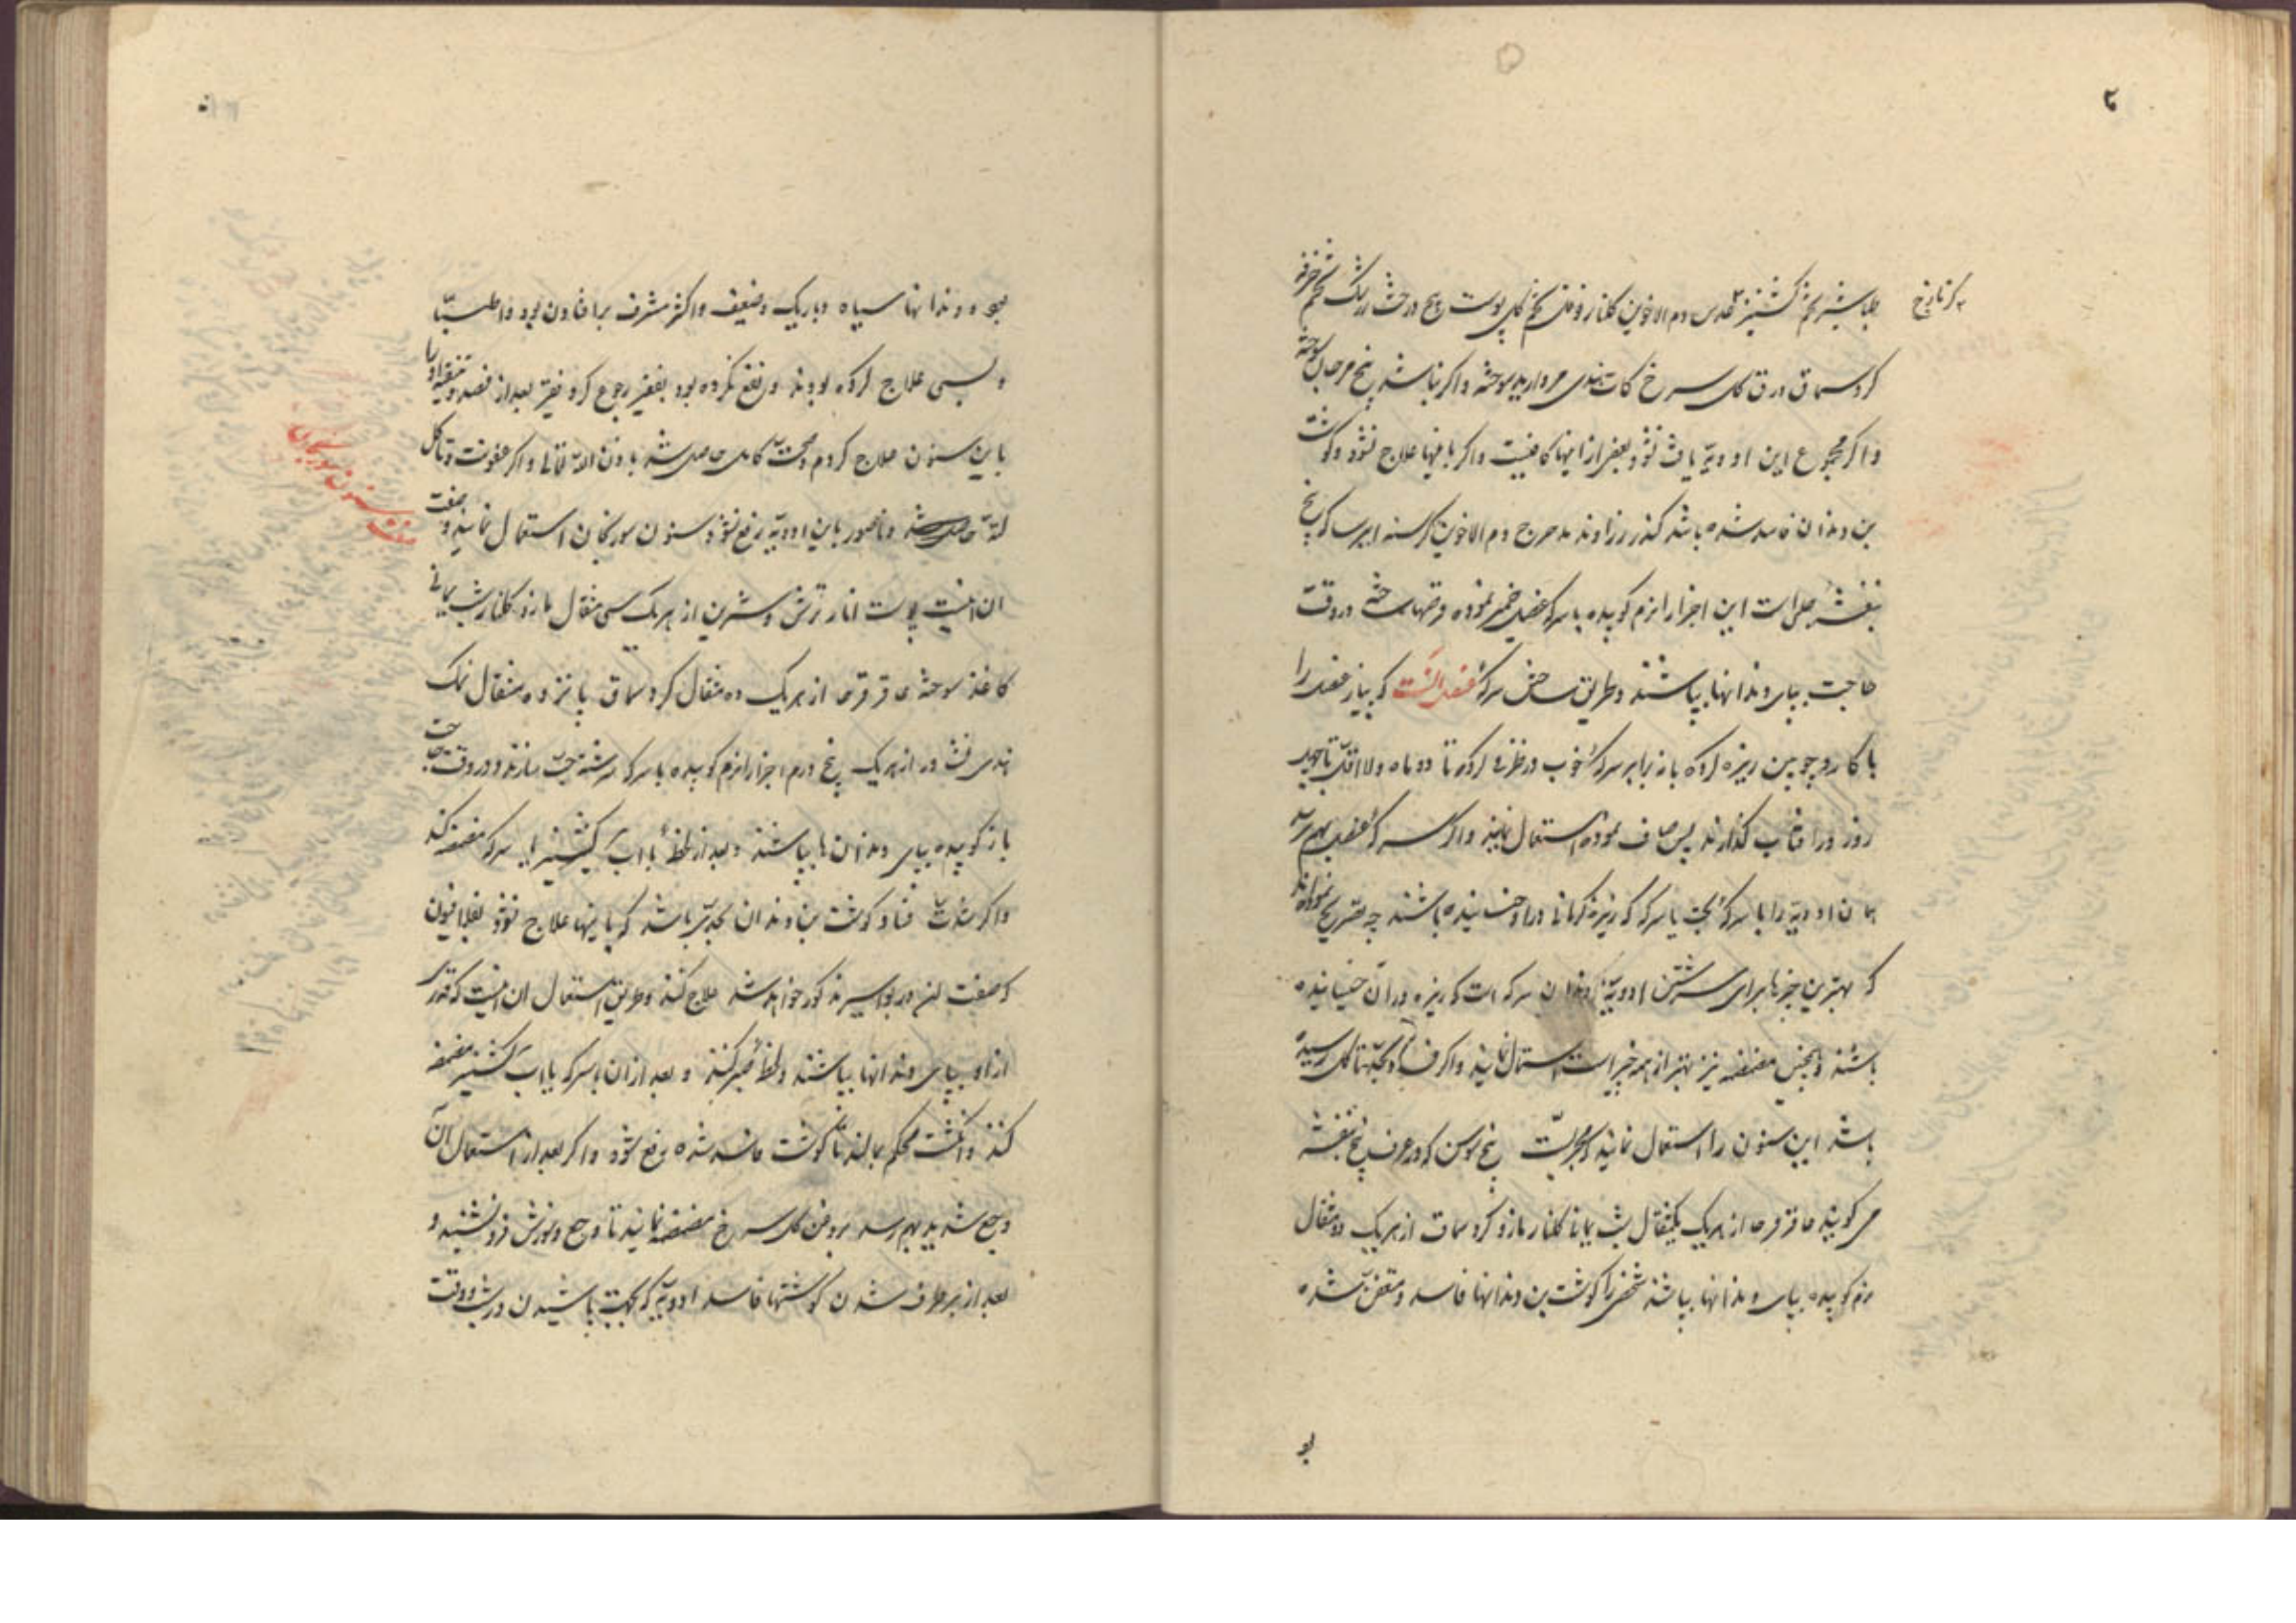 طباشیر تخم کشنیز عدس دم الاخوین کلنار فوفل تخم کل پوست بیخ درخت زرشک تخم خرفه
کرد سماق ورق کل سرخ کات هندی مروارید سوخته و اکر نباشد بیخ مرجان سوخته
و اکر مجموع این ادویّه یافت نشود بعضی از اینها کافیست و اکر باینها علاج نشود و کوشت
بن دندان فاسد شده باشد کندر زراوند مدحرج دم الاخوین کرسنه ایرسا که بیخ
بنفشه است این اجزا را نرم کوبیده با سرکه عنصل خمیر نموده و قرصها ساخته در وقت
حاجت بپای دندانها بپاشند و طریق ساختن سرکهٔ عنصل انست که پیاز عنصل را
با کارد چوبین ریزه کرده با برابر سرکهٔ خوب در ظرفی کرده تا دو ماه و لا اقل تا چهل
روز در افتاب کذارند پس صاف نموده استعمال نمایند و اکر سرکهٔ عنصل بهم نرسد
همان ادویّه را با سرکهٔ بحت یا سرکه که زیرهٔ کرمانی در او خیسانیده باشند چه تصریح نموده‌اند
که بهترین چیزها برای سرشتن ادویّهٔ دندان سرکه است که زیره در آن خیسانیده
باشند و بجهت مضمضه نیز بهتر از همه چیز است استعمال نمایند و اکر فساد بحدّ تاکل رسیده
باشد این سنون را استعمال نمایند که مجرّبست بیخ سوسن که در عرف بیخ بنفشه
می کویند عاقرقرحا از هریک یکمثقال شب یمانی کلنار مازو کرد سماق از هریک دو مثقال
نرم کوبیده بپای دندانها بپاشند شخصی را کوشت بن دندانها فاسد و متعفن شده
بو
بود و دندانها سیاه و باریک و ضعیف و اکثر مشرف برافتادن بود و اطبّا
بسی علاج کرده بودند و نفع نکرده بود بفقیر رجوع کرد فقیر بعد از فصد و تنقیه او را
باین سنون علاج کردم و صحّت کامل حاصل شد باذن اللّه تعالی و اکر عفونت و تاکل
لثّه حاصل شد و ناصور باین ادویّه رفع نشود سنون سوریخان استعمال نمایند و صفت
صفت سنون سوریخان
ان اینست پوست انار ترش و شیرین از هریک سی مثقال مازو کلنار شب یمانی
کاغذ سوخته عاقرقرحا از هریک ده مثقال کرد سماق پانزده مثقال نمک
هندی نشادر از هریک پنج درم اجزا را نرم کوبیده با سرکه سرشته حبّ سازند و در وقت حاجت
باز کوبیده بپای دندان ها بپاشند و بعد از لحظهٔ با اب کشنیز یا سرکه مضمضه کند
و اکر شدّت فساد کوشت بن دندان بحدّی باشد که باینها علاج نشود
که صفت ان در بواسیر مذکور خواهد شد علاج کنند و طریق استعمال ان اینست که قدری
از او بپای دندانها بپاشند و لحظهٔ صبر کنند و بعد از ان با سرکه یا اب کشنیز مضمضه
کنند و انکشت محکم بمالند تا کوشت فاسد شده رفع شود و اکر بعد از استعمال آن
وجع شدید بهم رسد بروغن کل سرخ مضمضه نمایند تا وجع و سوزش فرو نشیند و
بعد از برطرف شدن کوشتهای فاسد ادویّه که بجهت پاشیدن در شب و وقت